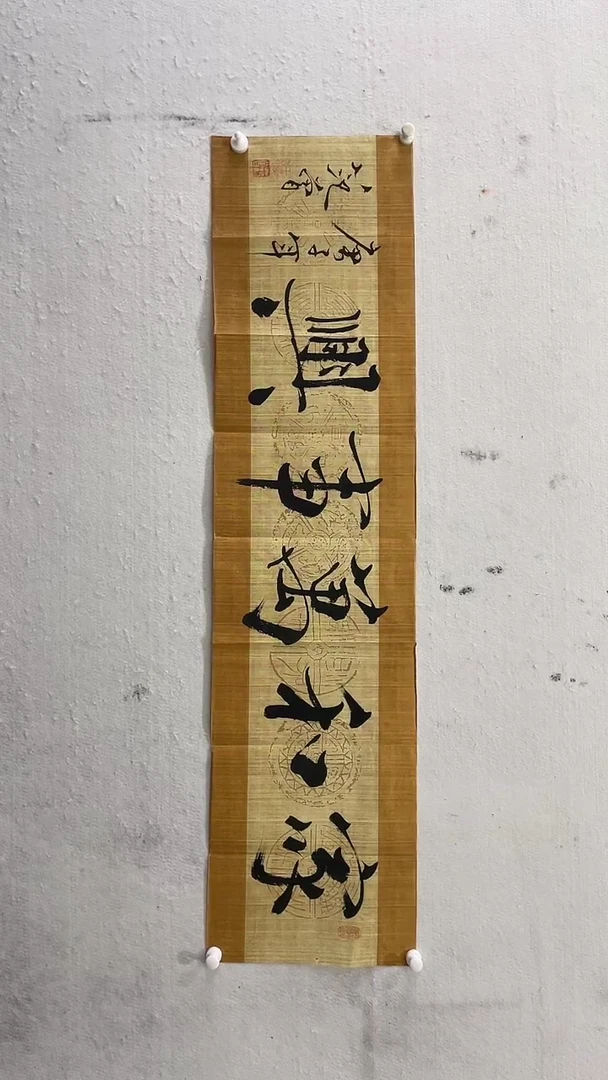 家和萬事興
庚子年
范曾